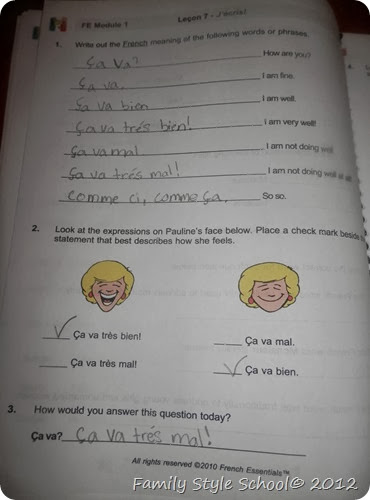 FE Module 1 Leçon 7 - J'écris!
1. Write out the French meaning of the following words or phrases.
Ça Va? How are you?
Ça va. I am fine.
Ça va bien I am well.
Ça va trés bien! I am very well!
Ça va mal I am not doing well
Ça va trés mal! I am not doing well at all.
Comme ci, comme ça, So so.
2. Look at the expressions on Pauline's face below. Place a check mark beside the
statement that best describes how she feels.
✓ Ça va très bien! ____ Ça va mal.
____ Ça va très mal! ✓ Ça va bien.
3. How would you answer this question today?
Ça va? Ça va trés mal!
All rights reserved ©2010 French Essentials™
Family Style School© 2012